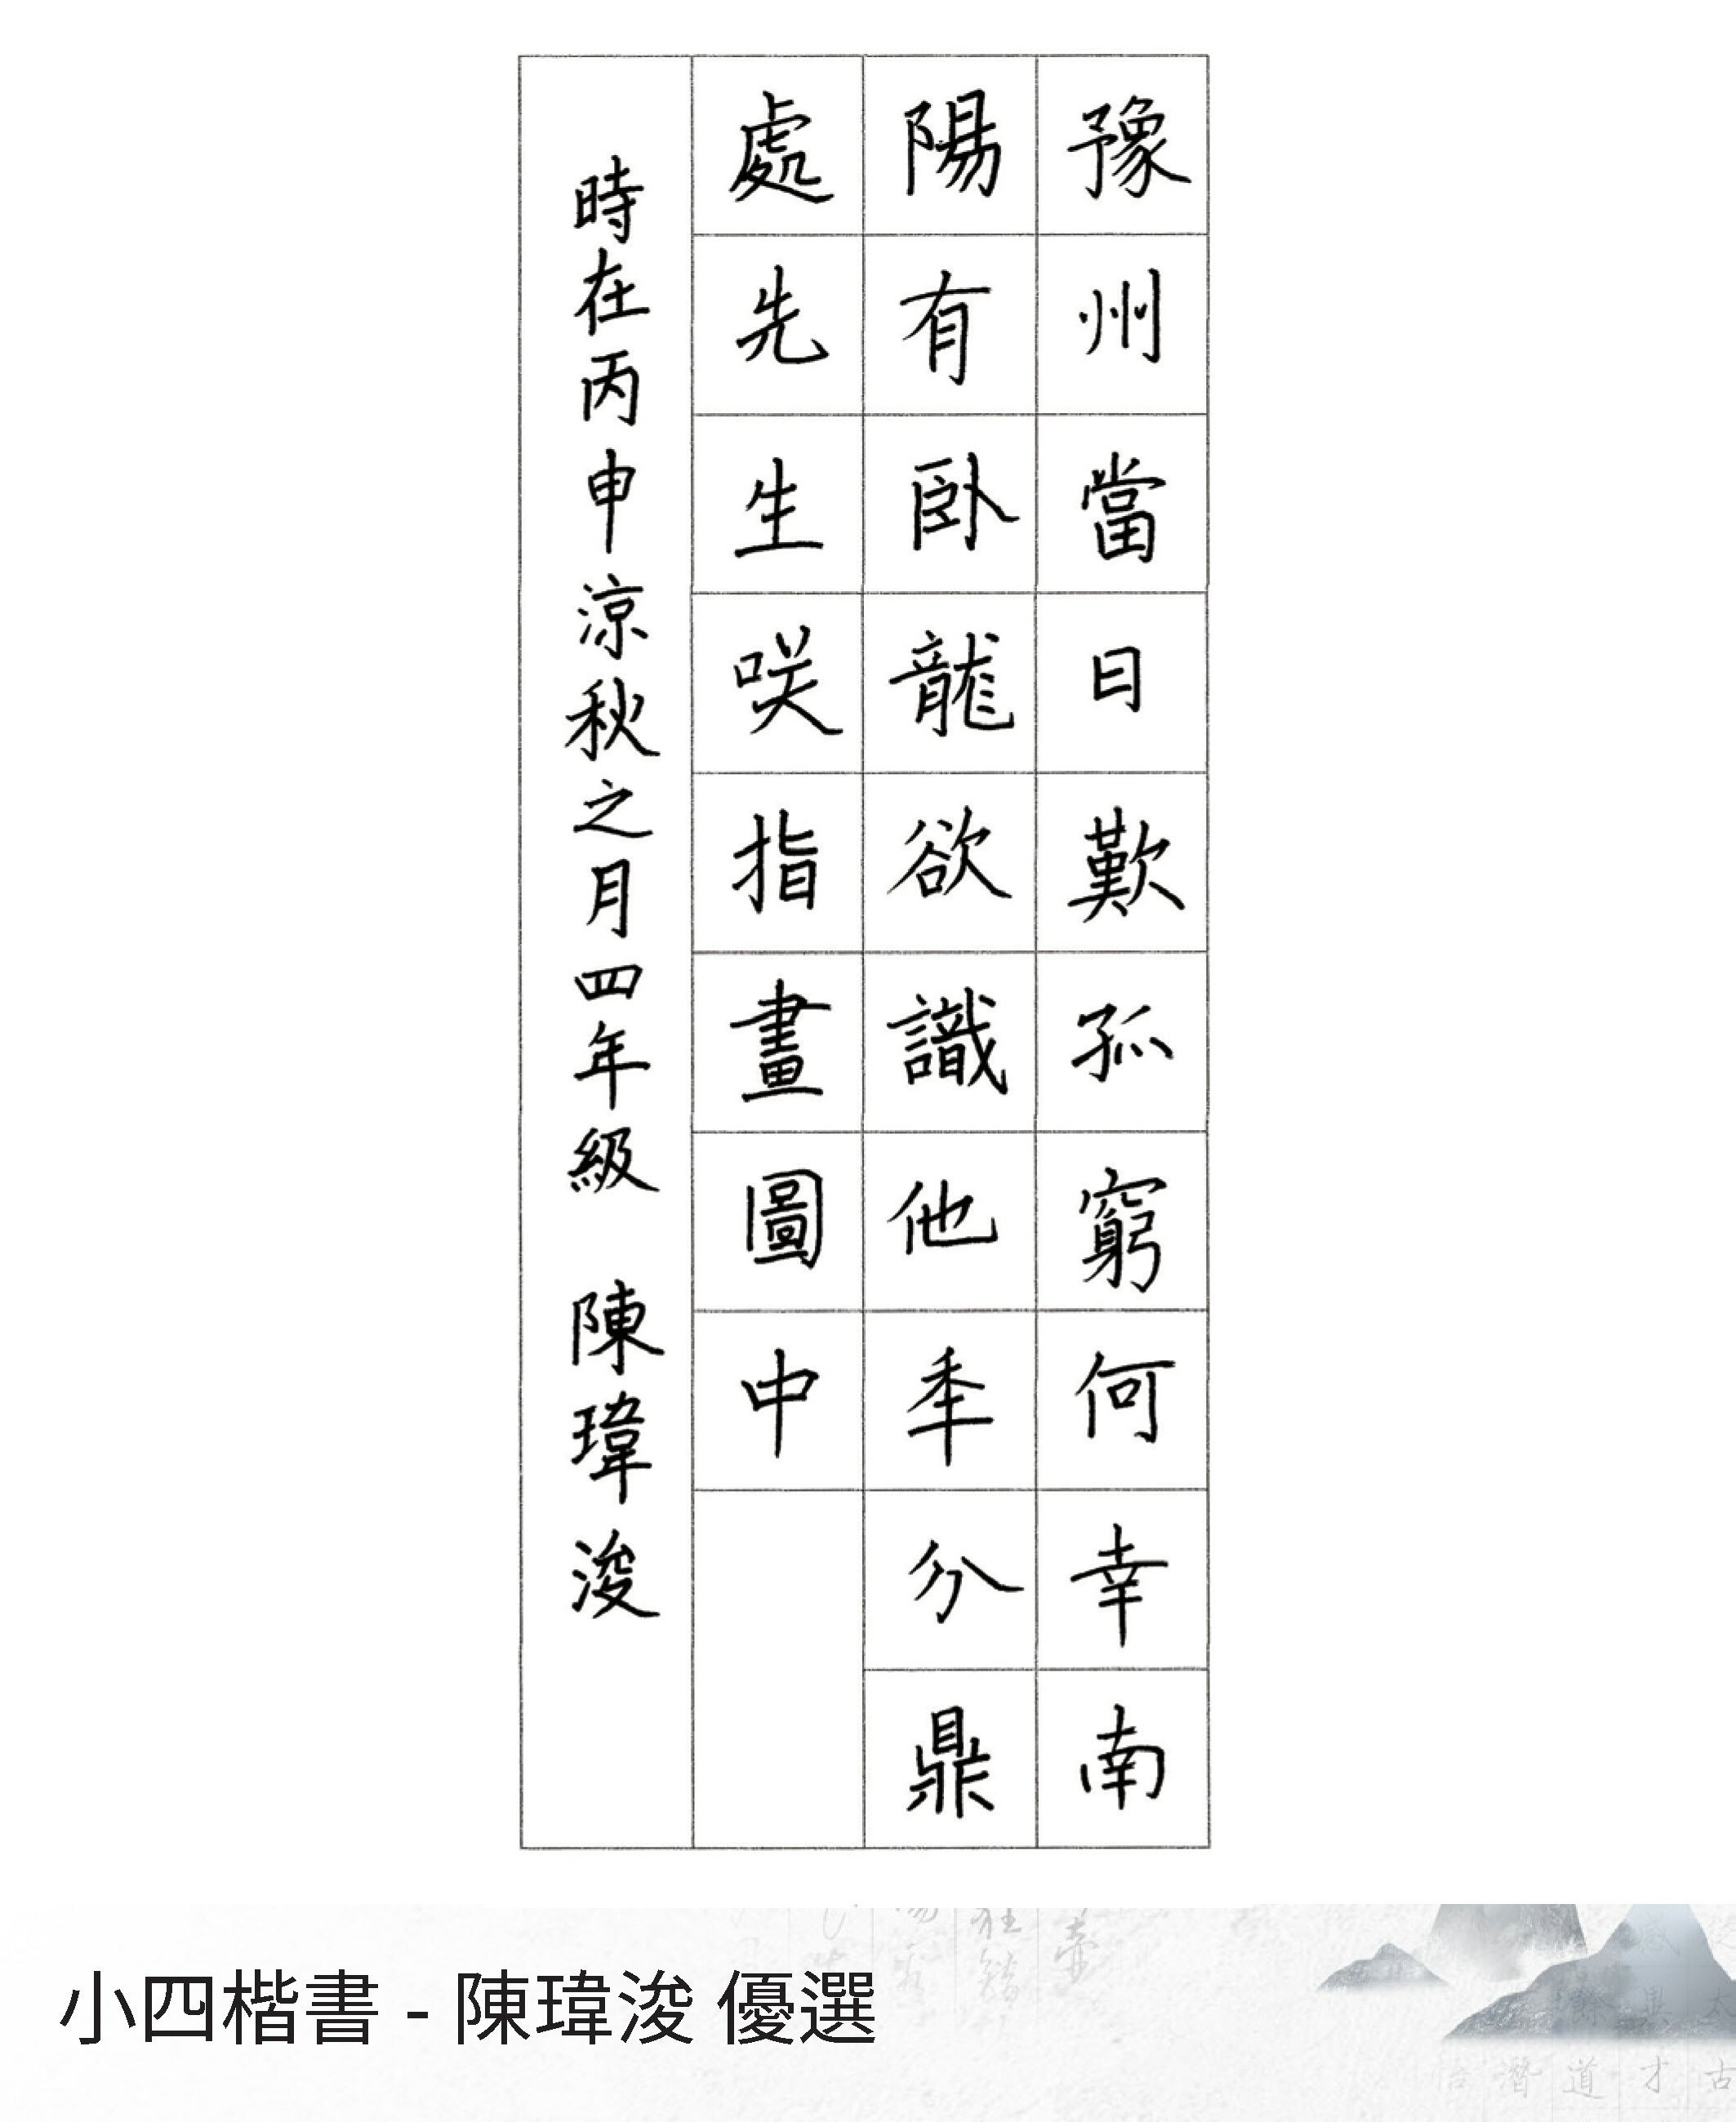 豫州當日歎孤窮何幸南
陽有臥龍欲識他秊分鼎
處先生咲指畫圖中
時在丙申涼秋之月四年級 陳瑋浚
小四楷書 - 陳瑋浚 優選